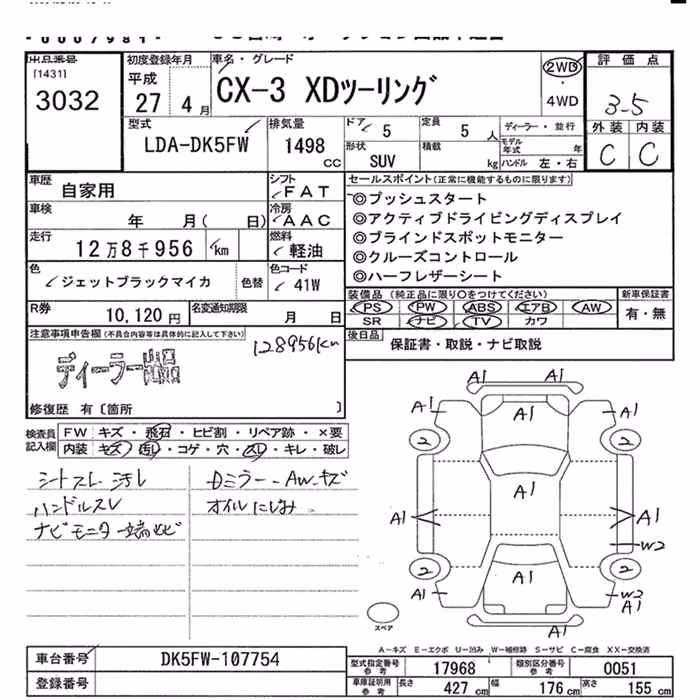 出品番号
[1431]
3032
初度登録年月
平成
27 4月
車名・グレード
CX-3 XDツーリング
2WD
・
4WD
評価点
3-5
外装 内装
C C
型式
LDA-DK5FW
排気量
1498
CC
ドア
5
定員
5 人
ディーラー・並行
形状
SUV
積載
kg
モデル年式 年
ハンドル 左・右
車歴
自家用
シフト
FAT
車検
年 月( 日)
冷房
AAC
走行
12万8千956 km
燃料
軽油
色
ジェットブラックマイカ
色替
色コード
41W
R券
10,120円
名変通知期限
月 日
セールスポイント(正常に機能するものに限ります)
◎プッシュスタート
◎アクティブドライビングディスプレイ
◎ブラインドスポットモニター
◎クルーズコントロール
◎ハーフレザーシート
装備品(純正品に限り○をつけてください)
PS PW ABS エアB AW
SR ナビ TV カワ
新車保証書
有・無
後日品
保証書・取説・ナビ取説
注意事項申告欄(不具合内容等は具体的に記入して下さい)
128956km
ディーラー
修復歴 有〔箇所 〕
検査員記入欄
FW キズ・飛石・ヒビ割・リペア跡・×要
内装 キズ・汚れ・コゲ・穴・スレ・キレ・破レ
シートスレ 汚レ
Dミラー、AWキズ
ハンドルスレ
オイルにじみ
ナビモニター
A1 A1
A1 A1 A1
2 2
A1
A1 A1
W2
2 2
A1
A1 W2
A1
A1
スペア
A-キズ E-エクボ U-凹み W-補修跡 S-サビ C-腐食 XX-交換済
車台番号
DK5FW-107754
登録番号
型式指定番号参考
17968
類別区分番号参考
0051
車庫証明用参考
長さ 427 cm
幅 176 cm
高さ 155 cm